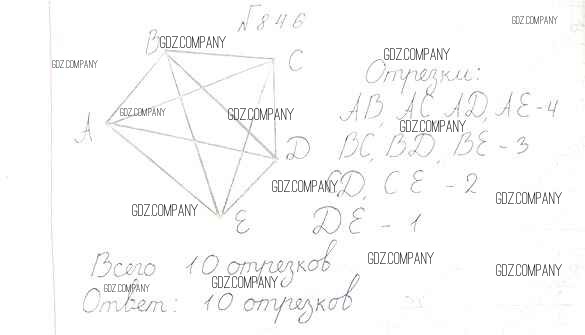 №846
GDZ.COMPANY
B
GDZ.COMPANY
C
GDZ.COMPANY
GDZ.COMPANY
Отрезки:
GDZ.COMPANY
GDZ.COMPANY
AB, AC, AD, AE - 4
A
GDZ.COMPANY
D
BC, BD, BE - 3
GDZ.COMPANY
CD, CE - 2
GDZ.COMPANY
GDZ.COMPANY
E
DE - 1
Всего 10 отрезков
GDZ.COMPANY
GDZ.COMPANY
GDZ.COMPANY
GDZ.COMPANY
Ответ: 10 отрезков